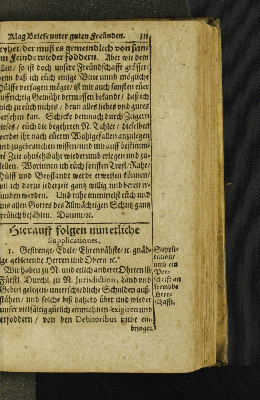 Klag Briefe unter guten Freunden. 311
leyhet, der muß es gemeindlich von sei-
nem Feinde wieder foddern. Aber wie dem
allen / so ist doch unsere Freundschafft grösser /
denn daß ich euch einige Bitte unnd mögliche
Hülffe versagen mögte / ist mir auch sonsten ewer
auffrichtig Gemühte dermassen bekandt / daß ich
mich zu euch nichts / denn alles liebes und gutes
versehen kan. Schicke demnach durch Zeigern
dieses / euch die begehrten N. Thaler / dieselben
werdet ihr nach ewerm Wohlgefallen anzulegen
und zugebrauchen wissen / und mir auff bestimm-
te Zeit ohnfehlbahr wiederumb erlegen und zu-
stellen. Worinnen ich euch sonsten Trost / Rahe /
Hülff und Beystandt werde erweisen können /
wil ich darzu jederzeit gantz willig und bereit er-
funden werden. Und thue immittelst euch und
uns allen Gottes des Allmächtigen Schutz gantz
treulich befehlen. Datum / etc.
Hierauff folgen nunetliche
Supplicationes.
1. Gestrenge / Edele / Ehrenvähste / etc. gnäh-
ige gebietende Herren und Obern etc.
Wir haben zu N. und etlich anderer Ohrten Ill.
Fürstl. Durchl. zu N. Jurisdiction, Land und
Gebiet gelegen / unterschiedliche Schulden auß-
stähen / und solche biß dahero über und wieder
unser vielfältig gütlich einmahnen / exigiren und
erfoddern / von den Debitoribus nicht ein-
bringen
Supplic-
cation /
umb ein
Vor-
schrifft an
frembde
Herr-
schafft.